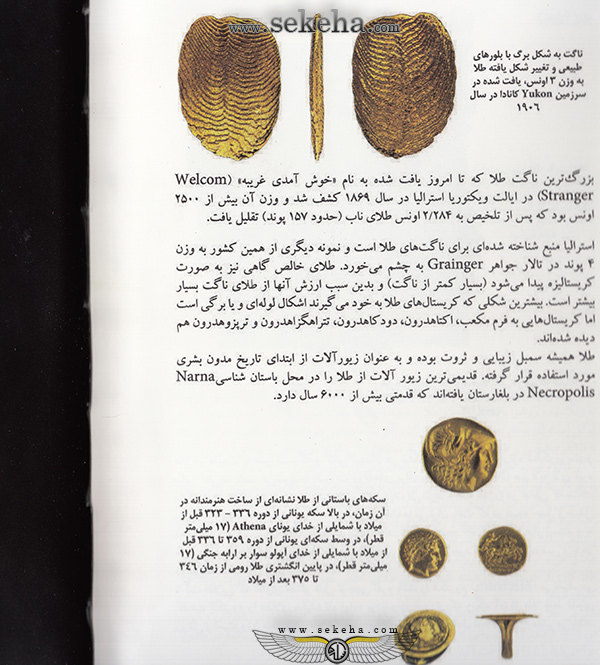 www.sekeha.com
ناگت به شکل برگ با بلورهای
طبیعی و تغییر شکل یافته طلا
به وزن ۳ اونس، یافت شده در
سرزمین Yukon کانادا در سال
۱۹۰۶
بزرگ‌ترین ناگت طلا که تا امروز یافت شده به نام «خوش آمدی غریبه» (Welcom
Stranger) در ایالت ویکتوریا استرالیا در سال ۱۸۶۹ کشف شد و وزن آن بیش از ۲۵۰۰
اونس بود که پس از تلخیص به ۲/۲۸۴ اونس طلای ناب (حدود ۱۵۷ پوند) تقلیل یافت.
استرالیا منبع شناخته شده‌ای برای ناگت‌های طلا است و نمونه دیگری از همین کشور به وزن
۴ پوند در تالار جواهر Grainger به چشم می‌خورد. طلای خالص گاهی نیز به صورت
کریستالیزه پیدا می‌شود (بسیار کمتر از ناگت) و بدین سبب ارزش آنها از طلای ناگت بسیار
بیشتر است. بیشترین شکلی که کریستال‌های طلا به خود می‌گیرند اشکال لوله‌ای و یا برگی است
اما کریستال‌هایی به فرم مکعب، اکتاهدرون، دودکاهدرون، تتراهگزاهدرون و تریزوهدرون هم
دیده شده‌اند.
طلا همیشه سمبل زیبایی و ثروت بوده و به عنوان زیورآلات از ابتدای تاریخ مدون بشری
مورد استفاده قرار گرفته. قدیمی‌ترین زیور آلات از طلا را در محل باستان شناسی Narna
Necropolis در بلغارستان یافته‌اند که قدمتی بیش از ۶۰۰۰ سال دارد.
سکه‌های باستانی از طلا نشانه‌ای از ساخت هنرمندانه در
آن زمان، در بالا سکه یونانی از دوره ۳۳۶ – ۳۲۳ قبل از
میلاد با شمایلی از خدای یونای Athena (۱۷ میلی‌متر
قطر)، در وسط سکه‌ای یونانی از دوره ۳۵۹ تا ۳۳۶ قبل
از میلاد با شمایلی از خدای آپولو سوار بر ارابه جنگی (۱۷
میلی‌متر قطر)، در پایین انگشتری طلا رومی از زمان ۳۴۶
تا ۳۷۵ بعد از میلاد
www.sekeha.com